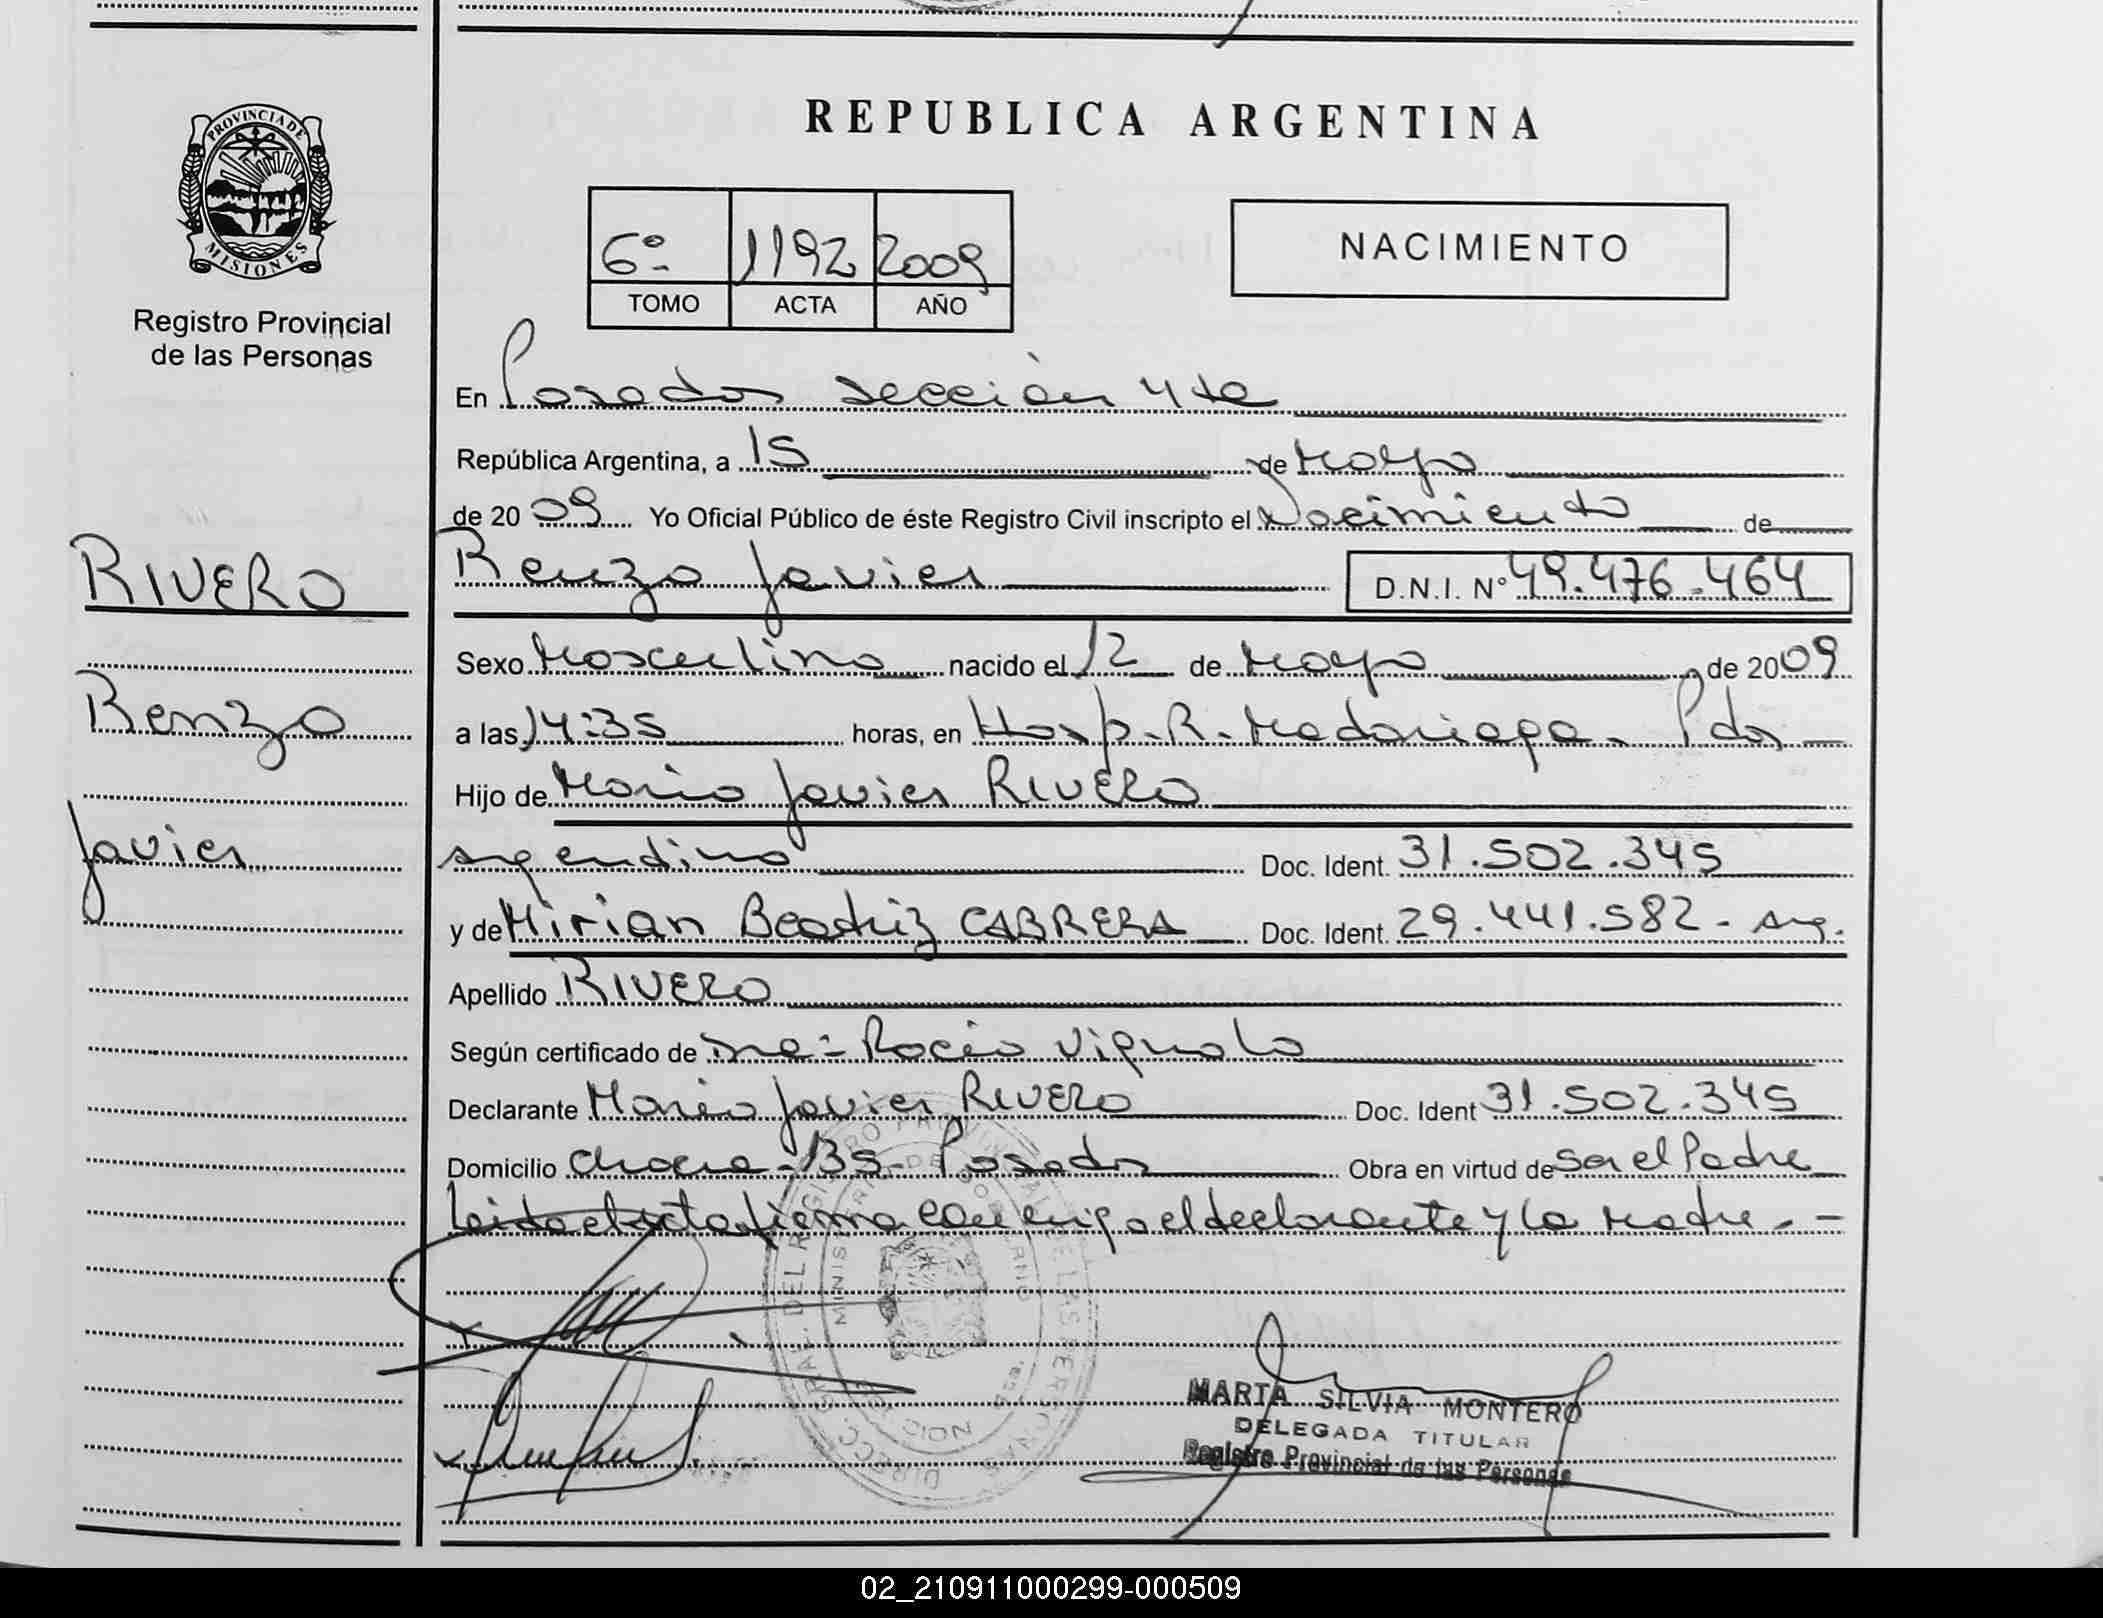 PROVINCIA DE
MISIONES
Registro Provincial
de las Personas
RIVERO
Renzo
Javier
REPUBLICA ARGENTINA
6º 1192 2009
TOMO ACTA AÑO
NACIMIENTO
En Posadas sección 4ta
República Argentina, a 15 de Mayo
de 2009 Yo Oficial Público de éste Registro Civil inscripto el Nacimiento de
Renzo Javier D.N.I. Nº 49.476.464
Sexo Masculino nacido el 12 de Mayo de 2009
a las 14:35 horas, en Hosp. R. Madariaga. Pdas
Hijo de Mario Javier RIVERO
argentino Doc. Ident. 31.502.345
y de Mirian Beatriz CABRERA Doc. Ident. 29.441.582 - arg.
Apellido RIVERO
Según certificado de Rocío Vignolo
Declarante Mario Javier RIVERO Doc. Ident 31.502.345
Domicilio Chacra - Posadas Obra en virtud de ser el Padre
Leida el acta firma conmigo el declarante y la Madre. -
MARTA SILVIA MONTERO
DELEGADA TITULAR
Registro Provincial de las Personas
02_210911000299-000509